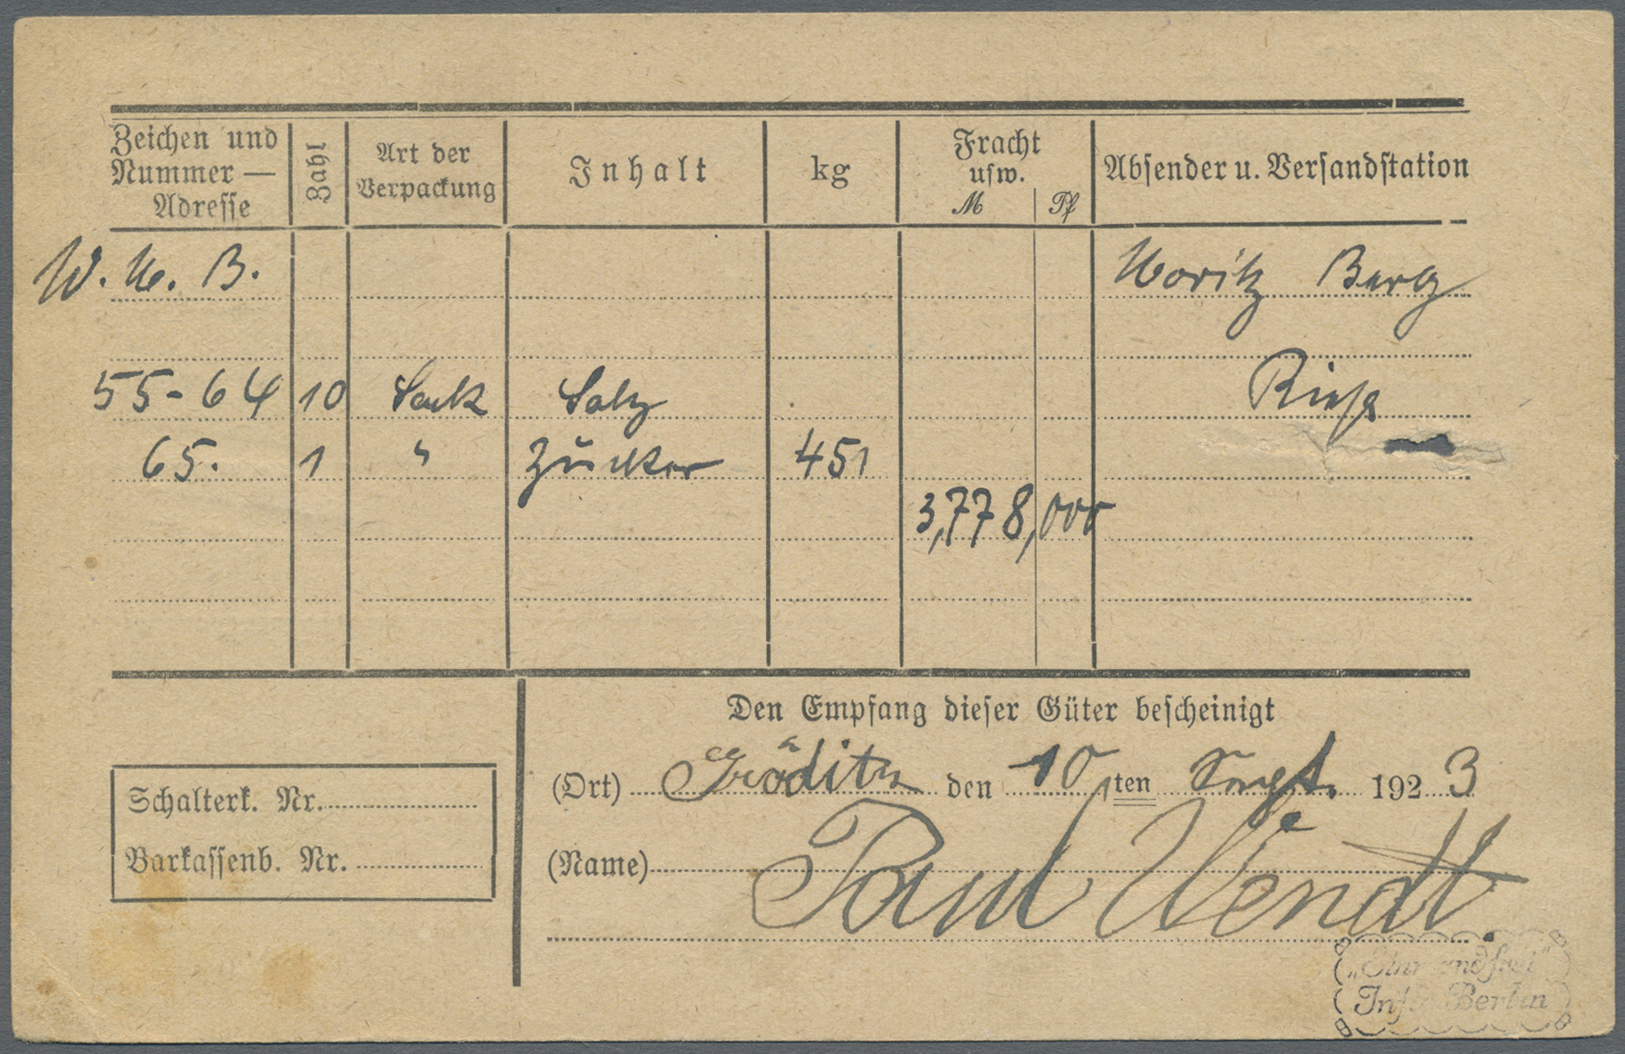 Zeichen und Nummer — Adresse
Zahl
Art der Verpackung
Inhalt
kg
Fracht usw.
M Pf
Absender u. Versandstation
W. M. B. Moritz Berg
Riesa
55-64 10 Sack Salz
65. 1 " Zucker 451
3,778,000
Den Empfang dieser Güter bescheinigt
(Ort) Gröditz den 10ten Sept. 1923
(Name) Paul Wendt.
Schalterk. Nr.
Barkassenb. Nr.
Infla Berlin